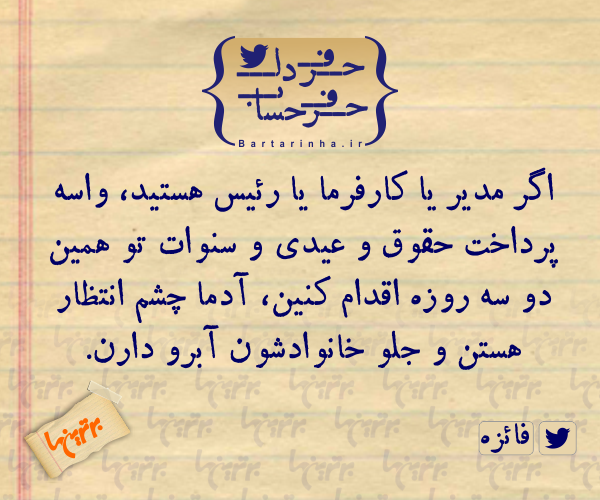 حرف دل
حرف حساب
Bartarinha.ir
اگر مدیر یا کارفرما یا رئیس هستید، واسه
پرداخت حقوق و عیدی و سنوات تو همین
دو سه روزه اقدام کنین، آدما چشم انتظار
هستن و جلو خانوادشون آبرو دارن.
فائزه
برترین‌ها